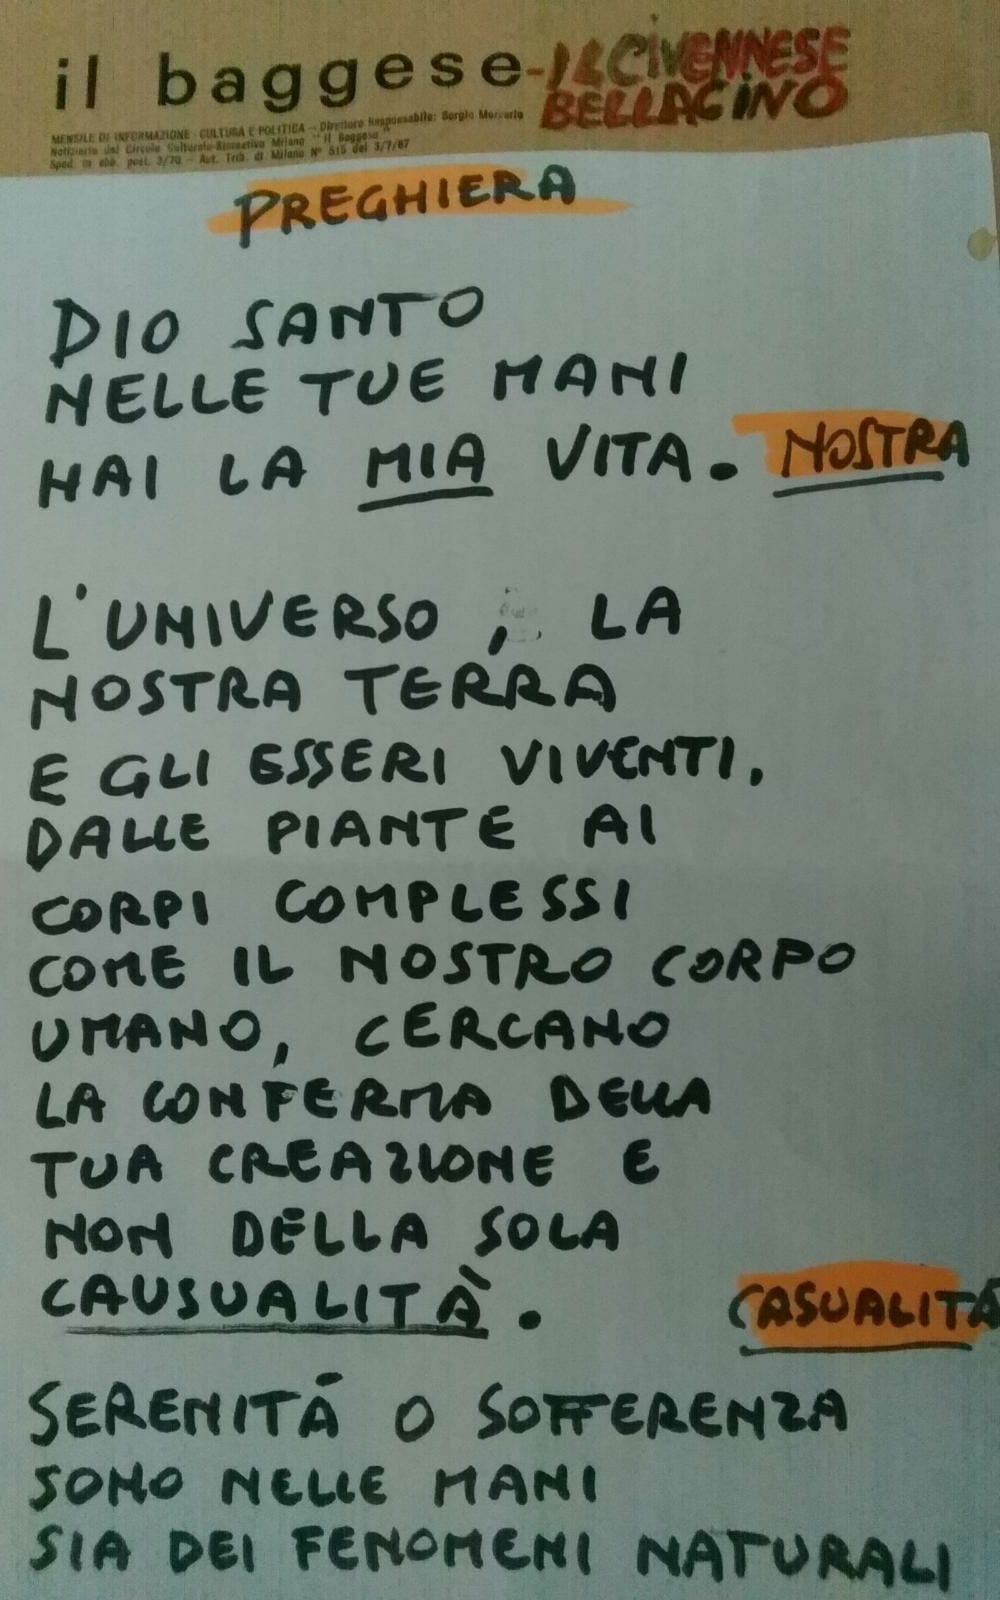 il baggese - IL CIVENNESE
BELLAGINO
MENSILE DI INFORMAZIONE - CULTURA E POLITICA - Direttore Responsabile: Sergio Mercurio
Notiziario del Circolo Culturale-Ricreativo Milano "Il Baggese"
Sped. in abb. post. 3/70 - Aut. Trib. di Milano N° 515 del 3/7/87
PREGHIERA
DIO SANTO
NELLE TUE MANI
HAI LA MIA VITA. NOSTRA
L'UNIVERSO, LA
NOSTRA TERRA
E GLI ESSERI VIVENTI,
DALLE PIANTE AI
CORPI COMPLESSI
COME IL NOSTRO CORPO
UMANO, CERCANO
LA CONFERMA DELLA
TUA CREAZIONE E
NON DELLA SOLA
CAUSUALITÀ. CASUALITÀ
SERENITÁ O SOFFERENZA
SONO NELLE MANI
SIA DEI FENOMENI NATURALI